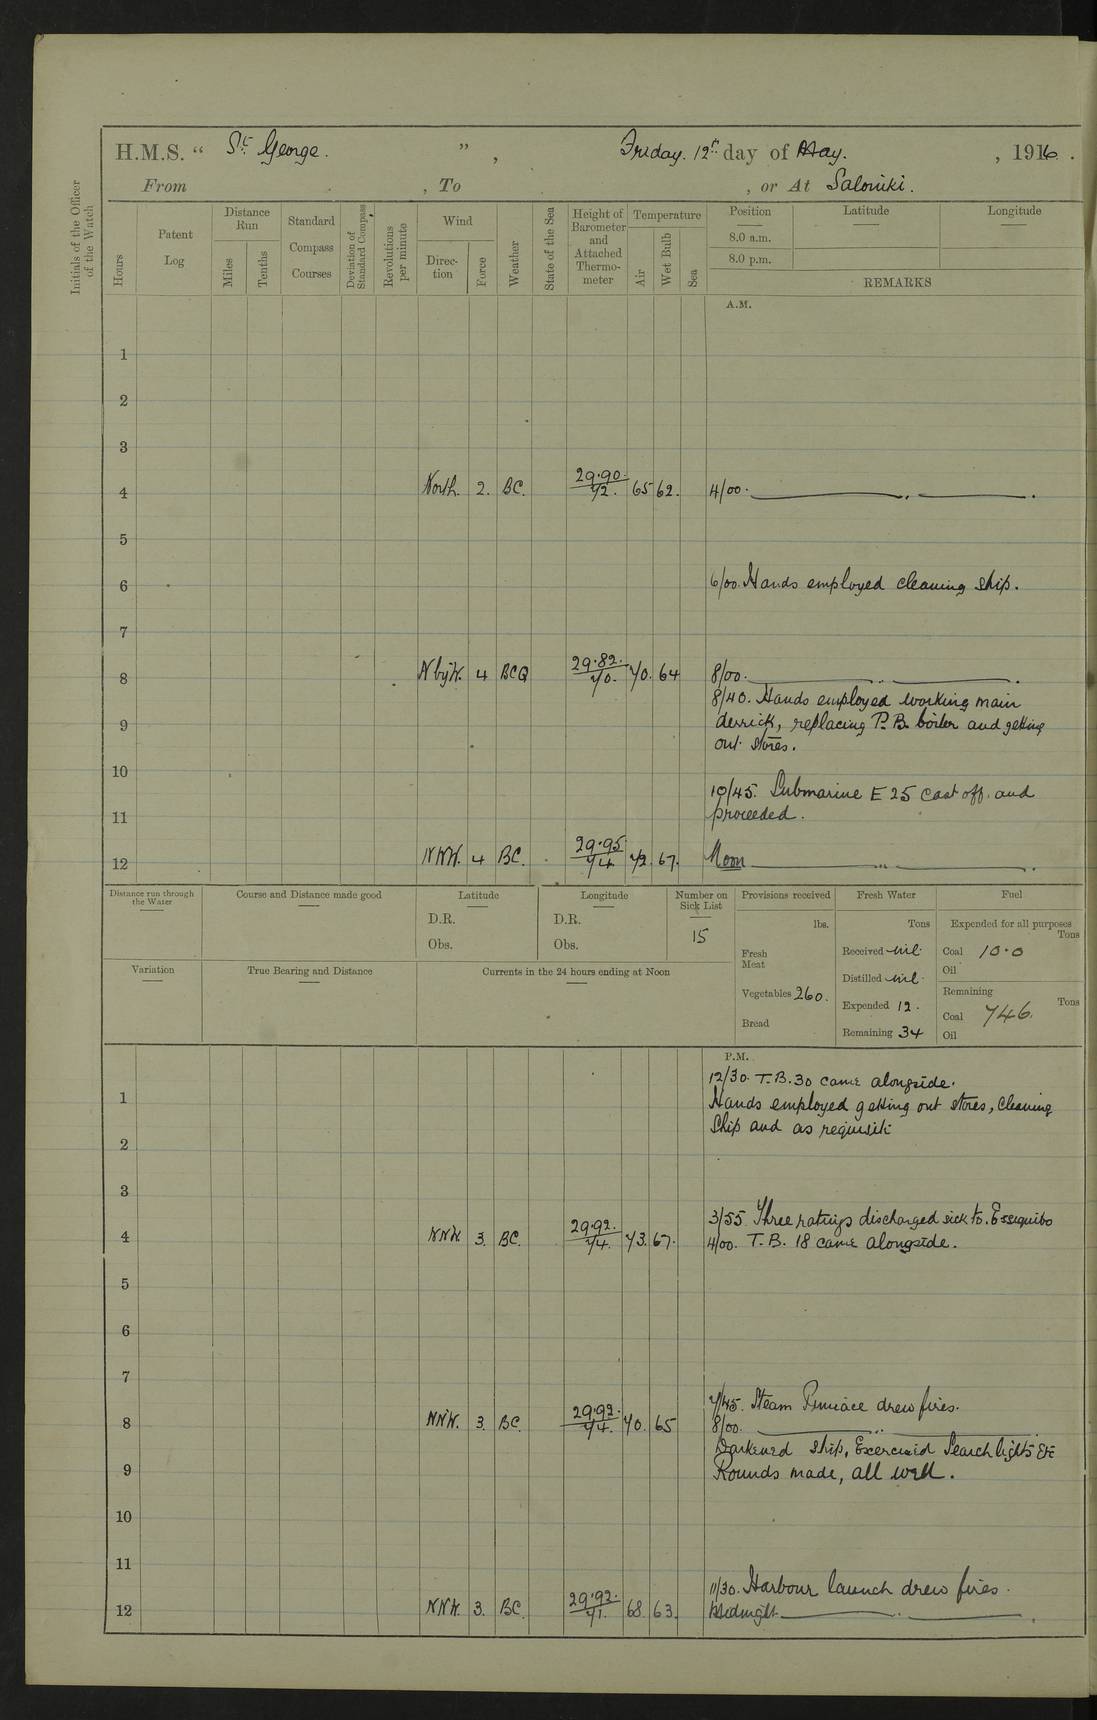 H.M.S. “ St George. ” , Friday. 12th day of May. , 1916 .
From , To , or At Saloniki.
Initials of the Officer of the Watch
Hours
Patent Log
Distance Run
Miles
Tenths
Standard Compass Courses
Deviation of Standard Compass
Revolutions per minute
Wind
Direc-tion
Force
Weather
State of the Sea
Height of Barometer and Attached Thermo-meter
Temperature
Air
Wet Bulb
Sea
Position
Latitude
Longitude
8.0 a.m.
8.0 p.m.
REMARKS
A.M.
1
2
3
4 North. 2. BC. 29.90. 72. 65 62. 4/00.
5
6 6/00. Hands employed cleaning ship.
7
8 N by W. 4 BCQ 29.82. 70. 70. 64 8/00.
8/40. Hands employed working main
9 derrick, replacing P.B. boiler and getting
out stores.
10
10/45. Submarine E 25 cast off. and
11 proceeded.
12 NNW. 4 BC. 29.95 74 72. 67. Noon
Distance run through the Water
Course and Distance made good
Latitude
D.R.
Obs.
Longitude
D.R.
Obs.
Number on Sick List
15
Provisions received
lbs.
Fresh Meat
Vegetables 260.
Bread
Fresh Water
Tons
Received nil.
Distilled nil.
Expended 12.
Remaining 34
Fuel
Expended for all purposes
Tons
Coal 10.0
Oil
Remaining
Tons
Coal 746.
Oil
Variation
True Bearing and Distance
Currents in the 24 hours ending at Noon
P.M.
12/30. T.B. 30 came alongside.
1 Hands employed getting out stores, cleaning
ship and as requisite
2
3
3/55 Three ratings discharged sick to. Essequibo
4 NNW 3. BC. 29.92. 74. 73. 67. 4/00. T.B. 18 came alongside.
5
6
7
7/45. Steam Pinnace drew fires.
8 NNW. 3. BC. 29.92. 74. 70. 65 8/00.
Darkened ship, Exercised Searchlights Etc
9 Rounds made, all well.
10
11
11/30. Harbour launch drew fires.
12 NNW. 3. BC. 29.92. 71. 68. 63. Midnight.